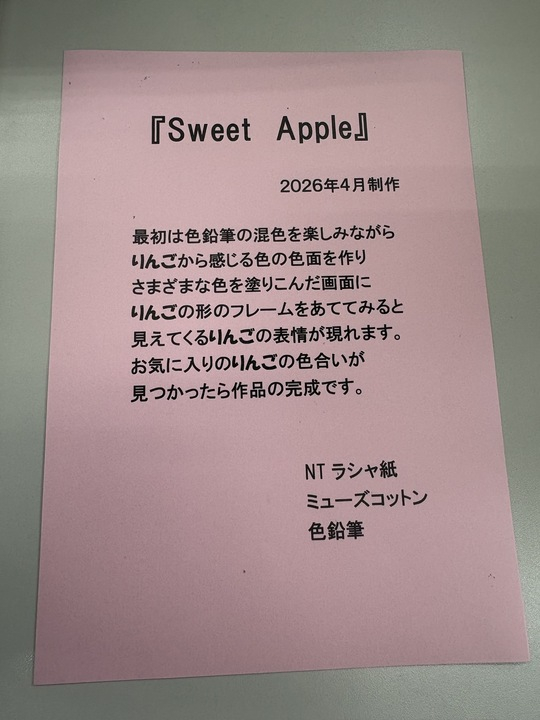 『Sweet Apple』
2026年4月制作
最初は色鉛筆の混色を楽しみながら
りんごから感じる色の色面を作り
さまざまな色を塗りこんだ画面に
りんごの形のフレームをあててみると
見えてくるりんごの表情が現れます。
お気に入りのりんごの色合いが
見つかったら作品の完成です。
NT ラシャ紙
ミューズコットン
色鉛筆